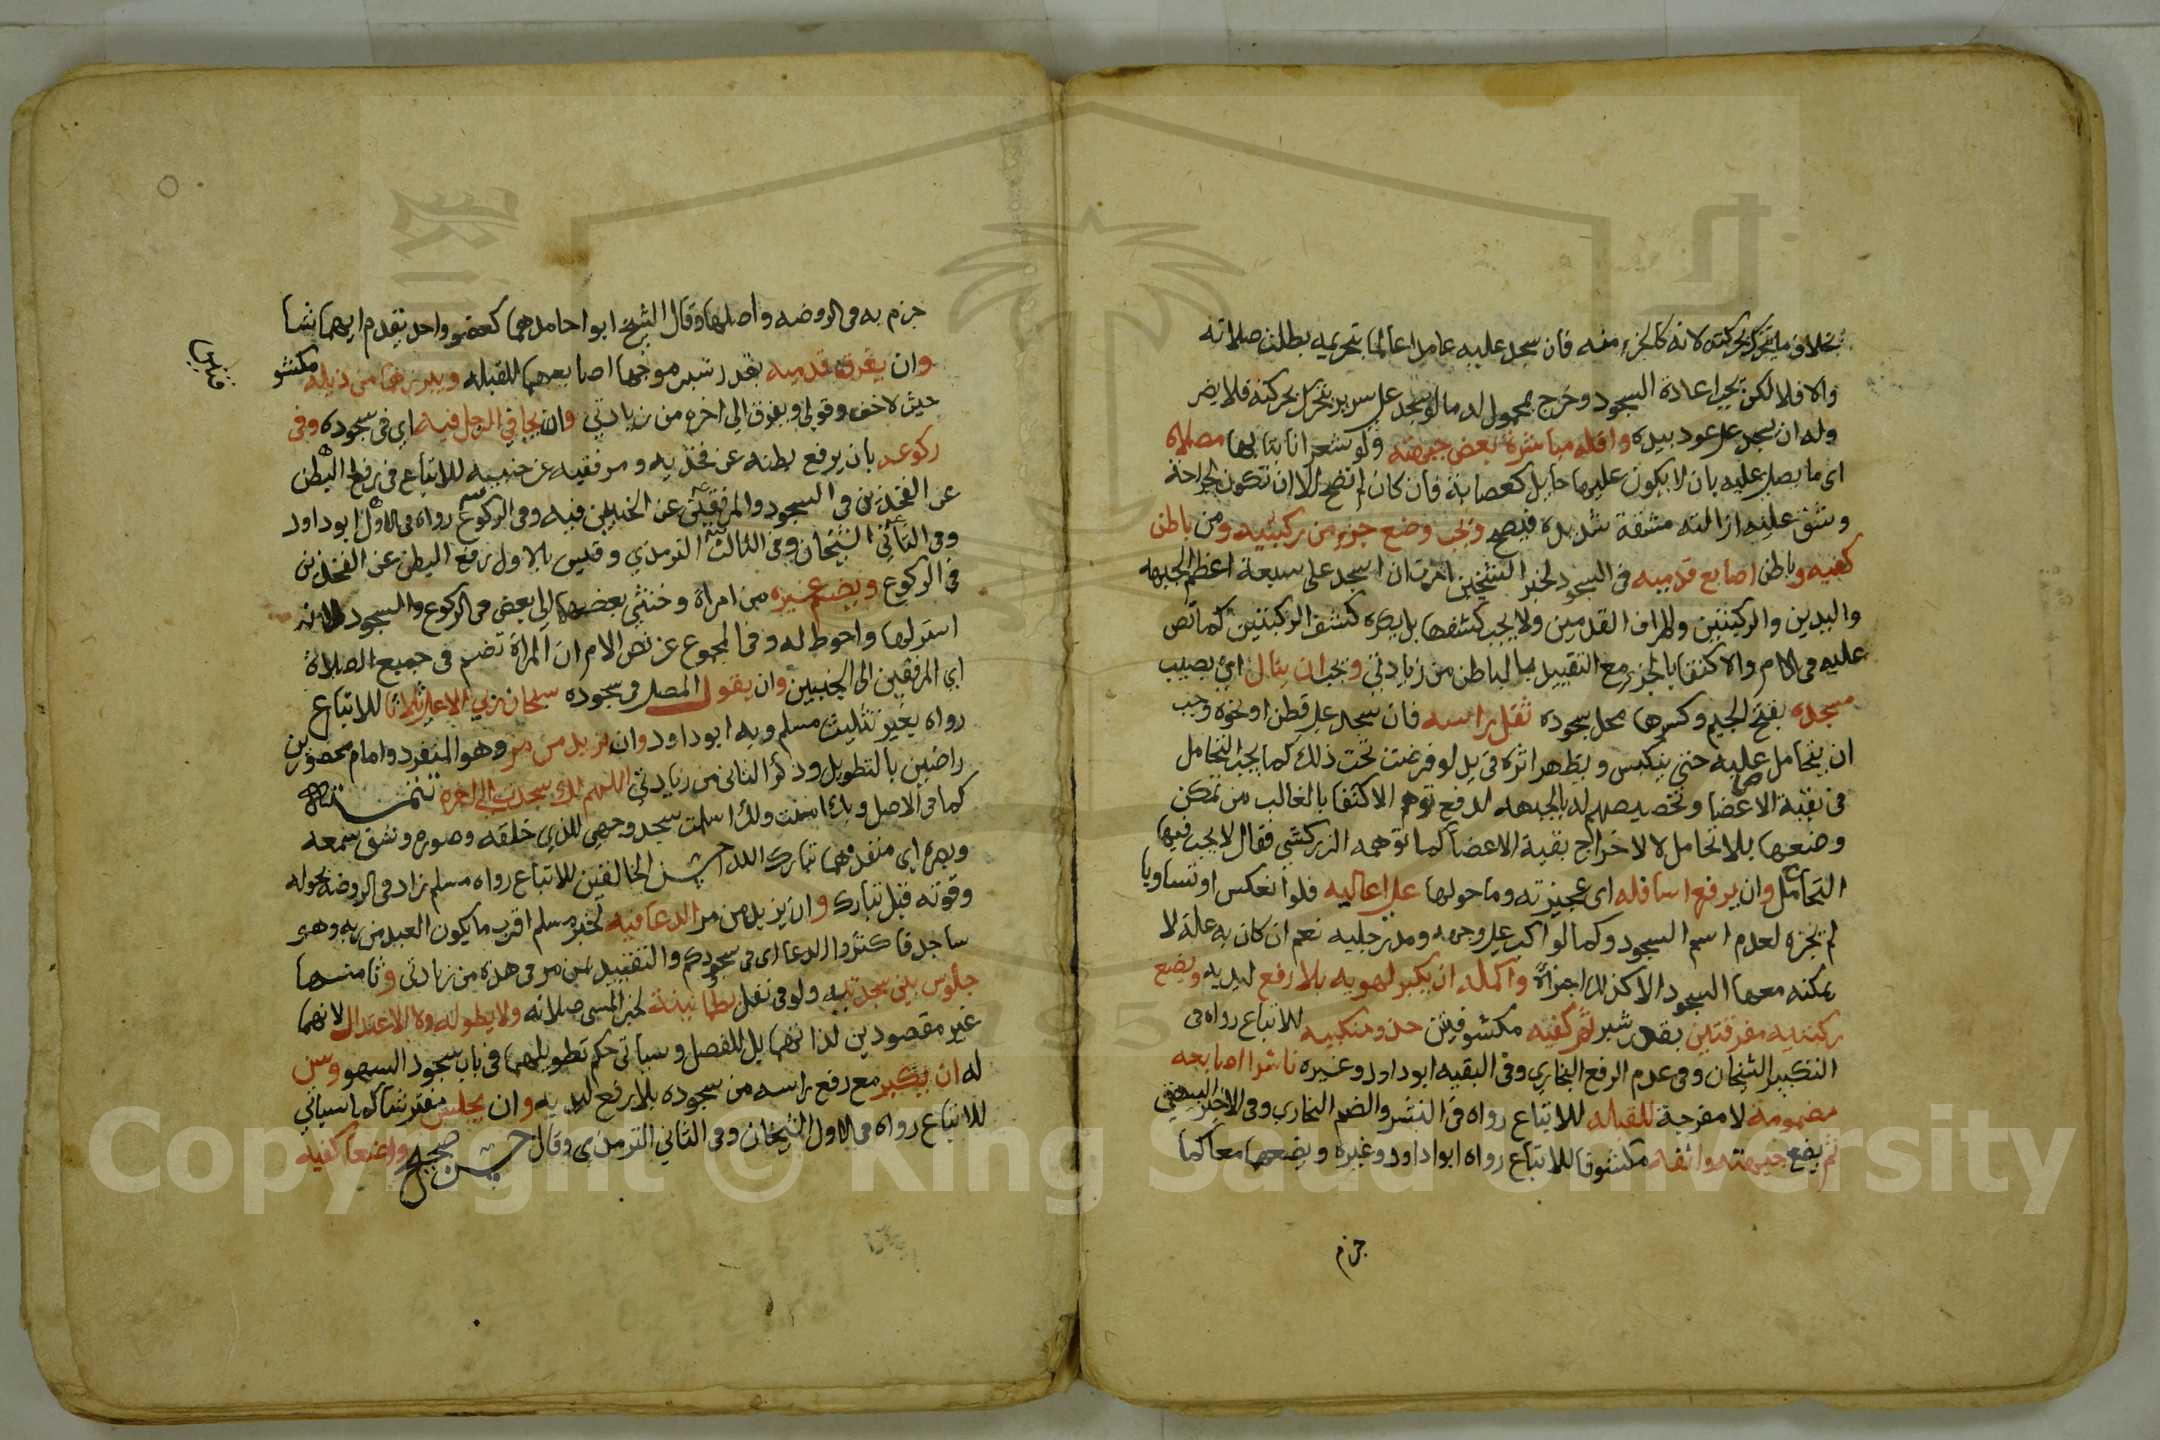 بخلاف ما يتحرك بحركته لانه كالجزء منه فان سجد عليه عامدا عالما بتحريمه بطلت صلاته
والا فلا لكن يجب اعادة السجود وخرج بمحمول له ما لو سجد على سرير يتحرك بحركته فلا يضر
وله ان يسجد على عود بيده واقله مباشرة بعض جبهته ولو شعرا نابتا بها مصلاه
اي ما يصلي عليه بان لا يكون عليها حايل كعصابة فان كان لم تصح الا ان تكون لجراحة
وشق عليه ازالته مشقة شديدة فيصح ويجب وضع جزء من ركبتيه ومن باطن
كفيه وباطن اصابع قدميه في السجود لخبر الشيخين امرت ان اسجد على سبعة اعظم الجبهه
واليدين والركبتين واطراف القدمين ولا يجب كشفها بل يكره كشف الركبتين كما نص
عليه في الام والاكتفا بالجزء مع التقييد بالباطن من زيادتي ويجب ان ينال اي يصيب
مسجده بفتح الجيم وكسرها محل سجوده ثقل راسه فان سجد على قطن او نحوه وجب
ان يتحامل عليه حتى ينكبس ويظهر اثره في يد لو فرضت تحت ذلك كما يجب التحامل
في بقية الاعضا وتخصيصهم له بالجبهه لدفع توهم الاكتفا بالغالب من تمكن
وضعها بلا تحامل لا لاخراج بقية الاعضا كما توهمه الزركشي فقال لا يجب فيها
التحامل وان يرفع اسافله اي عجيزته وما حولها على اعاليه فلو انعكس او تساويا
لم يجزه لعدم اسم السجود وكما لو اكب على وجهه ومد رجليه نعم ان كان به علة لا
يمكنه معها السجود الا كذلك اجزاه واكمله ان يكبر لهويه بلا رفع ليديه ويضع
ركبتيه مفرقتين بقدر شبر ثم كفيه مكشوفتين حذو منكبيه للاتباع رواه في
التكبير الشيخان وفي عدم الرفع البخاري وفي البقيه ابو داود وغيره ناشرا اصابعه
مضمومة لا مفرجة للقبله للاتباع رواه في النشر والضم البخاري وفي الاخير البيهقي
ثم يضع جبهته وانفه مكشوفا للاتباع رواه ابو داود وغيره ويضعهما معا كما
جزم
جزم به في الروضه واصلها وقال الشيخ ابو حامد هما كعضو واحد يقدم ايهما شا
وان يفرق قدميه بقدر شبر موجها اصابعهما للقبله ويبرزهما من ذيله مكشو
فتين
حيث لا خف وقولي ويفرق الى اخره من زيادتي وان يجافي الرجل فيه اي في سجوده وفي
ركوعه بان يرفع بطنه عن فخذيه ومرفقيه عن جنبيه للاتباع في رفع البطن
عن الفخذين في السجود والمرفقين عن الجنبين فيه وفي الركوع رواه في الاول ابو داود
وفي الثاني الشيخان وفي الثالث الترمذي وقيس بالاول رفع البطن عن الفخذين
في الركوع ويضم غيره من امراة وخنثى بعضهما الى بعض في الركوع والسجود لانه
استر لها واحوط له وفي المجموع عن نص الام ان المراة تضم في جميع الصلاة
اي المرفقين الى الجنبين وان يقول المصلي في سجوده سبحان ربي الاعلى ثلاثا للاتباع
رواه بغير تثليث مسلم وبه ابو داود وان يزيد من مر وهو المنفرد وامام محصورين
راضين بالتطويل وذكر الثاني من زيادتي اللهم لك سجدت الى اخره تتمته
كما في الاصل وبك امنت ولك اسلمت سجد وجهي للذي خلقه وصوره وشق سمعه
وبصره اي منفذهما تبارك الله احسن الخالقين للاتباع رواه مسلم زاد في الروضه بحوله
وقوته قبل تبارك وان يزيد من مر الدعا فيه لخبر مسلم اقرب ما يكون العبد من ربه وهو
ساجد فاكثروا الدعا اي في سجودكم والتقييد بمن مر في هذه من زيادتي وثامنها
جلوس بين سجدتيه ولو في نفل بطمانينة لخبر المسي صلاته ولا يطوله ولا الاعتدال لانهما
غير مقصودين لذاتهما بل للفصل وسياتي حكم تطويلهما في باب سجود السهو وسن
له ان يكبر مع رفع راسه من سجوده بلا رفع ليديه وان يجلس مفترشا كما سياتي
للاتباع رواه في الاول الشيخان وفي الثاني الترمذي وقال حسن صحيح واضعا كفيه
Copyright © King Saud University